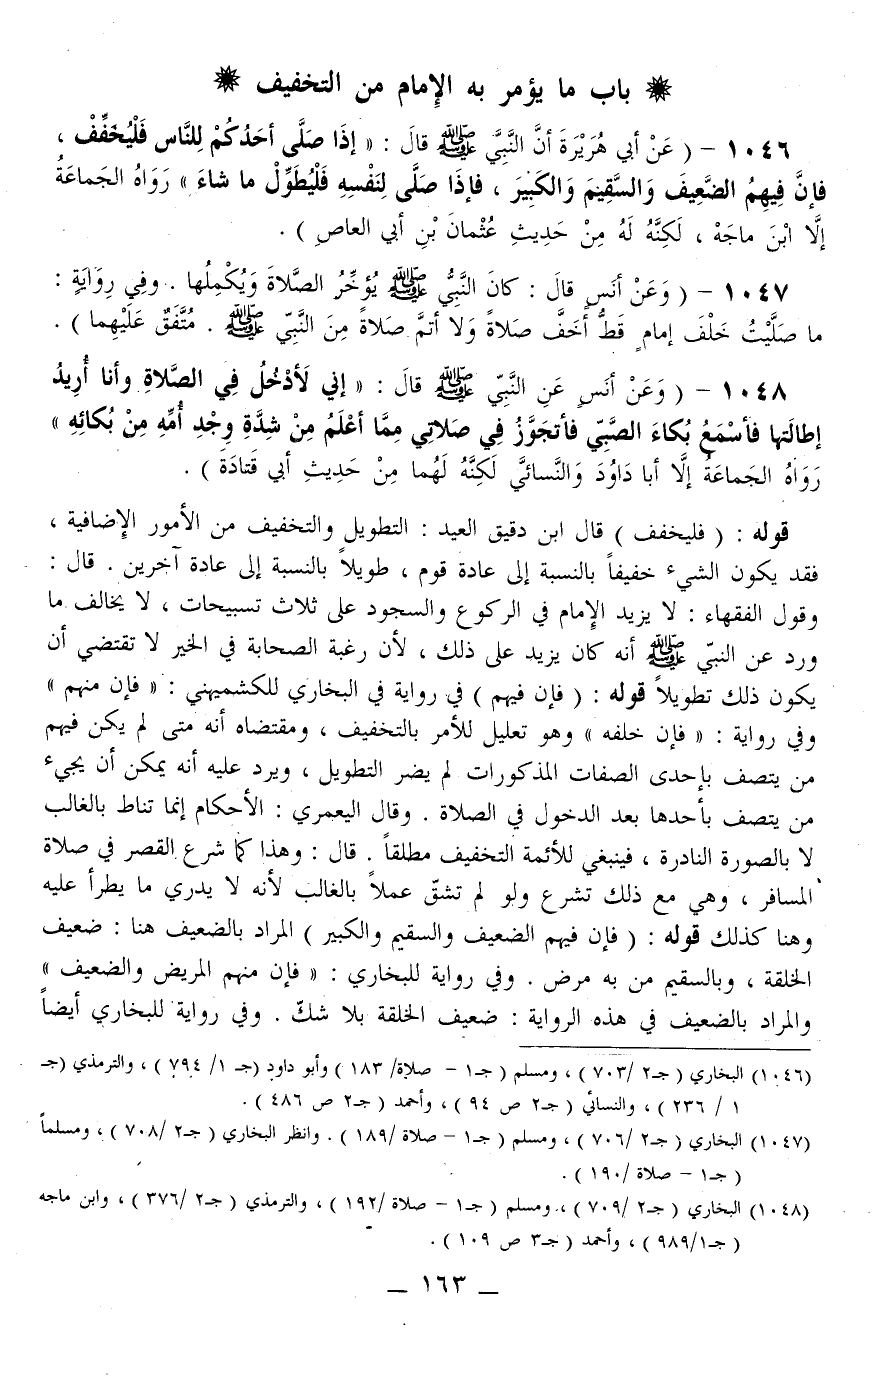 ❋ باب ما يؤمر به الإمام من التخفيف ❋
١٠٤٦ – ( عَنْ أبي هُرَيْرَةَ أنَّ النَّبيَّ ﷺ قالَ : « إذَا صَلَّى أحَدُكُمْ لِلنَّاس فَلْيُخَفِّفْ ،
فإنَّ فِيهِمُ الضَّعِيفَ وَالسَّقِيمَ وَالكَبِيرَ ، فإذَا صَلَّى لِنَفْسِهِ فَلْيُطَوِّلْ ما شاءَ » رَوَاهُ الجَماعَةُ
إلَّا ابْنَ ماجَهْ ، لَكِنَّهُ لَهُ مِنْ حَدِيثِ عُثْمانَ بْنِ أبي العاصِ ) .
١٠٤٧ – ( وَعَنْ أنَسٍ قالَ : كانَ النَّبيُّ ﷺ يُؤخِّرُ الصَّلاةَ وَيُكْمِلُها . وفِي رِوَايَةٍ :
ما صَلَّيْتُ خَلْفَ إمامٍ قَطُّ أخَفَّ صَلاةً وَلا أتمَّ صَلاةً مِنَ النَّبيِّ ﷺ . مُتَّفَقٌ عَلَيْهِما ) .
١٠٤٨ – ( وَعَنْ أنَسٍ عَنِ النَّبيِّ ﷺ قالَ : « إني لَأدْخُلُ فِي الصَّلاةِ وأنا أُرِيدُ
إطالَتها فأسْمَعُ بُكاءَ الصَّبيِّ فأتجَوَّزُ فِي صَلاتِي مِمَّا أعْلَمُ مِنْ شِدَّةِ وِجْدِ أُمِّهِ مِنْ بُكائِهِ »
رَوَاهُ الجَماعَةُ إلَّا أبا دَاوُدَ وَالنَّسائيَّ لَكِنَّهُ لَهُما مِنْ حَدِيثِ أبي قَتادَةَ ) .
قوله : ( فليخفف ) قال ابن دقيق العيد : التطويل والتخفيف من الأمور الإضافية ،
فقد يكون الشيء خفيفاً بالنسبة إلى عادة قوم ، طويلاً بالنسبة إلى عادة آخرين . قال :
وقول الفقهاء : لا يزيد الإمام في الركوع والسجود على ثلاث تسبيحات ، لا يخالف ما
ورد عن النبيّ ﷺ أنه كان يزيد على ذلك ، لأن رغبة الصحابة في الخير لا تقتضي أن
يكون ذلك تطويلاً قوله : ( فإن فيهم ) في رواية في البخاري للكشميهني : « فإن منهم »
وفي رواية : « فإن خلفه » وهو تعليل للأمر بالتخفيف ، ومقتضاه أنه متى لم يكن فيهم
من يتصف بإحدى الصفات المذكورات لم يضر التطويل ، ويرد عليه أنه يمكن أن يجيء
من يتصف بأحدها بعد الدخول في الصلاة . وقال اليعمري : الأحكام إنما تناط بالغالب
لا بالصورة النادرة ، فينبغي للأئمة التخفيف مطلقاً . قال : وهذا كما شرع القصر في صلاة
المسافر ، وهي مع ذلك تشرع ولو لم تشقّ عملاً بالغالب لأنه لا يدري ما يطرأ عليه
وهنا كذلك قوله : ( فإن فيهم الضعيف والسقيم والكبير ) المراد بالضعيف هنا : ضعيف
الخلقة ، وبالسقيم من به مرض . وفي رواية للبخاري : « فإن منهم المريض والضعيف »
والمراد بالضعيف في هذه الرواية : ضعيف الخلقة بلا شكّ . وفي رواية للبخاري أيضاً
(١٠٤٦) البخاري ( جـ٢ /٧٠٣ ) ، ومسلم ( جـ١ – صلاة/ ١٨٣ ) وأبو داود (جـ ١/ ٧٩٤ ) ، والترمذي (جـ
١ / ٢٣٦ ) ، والنسائي ( جـ٢ ص ٩٤ ) ، وأحمد ( جـ٢ ص ٤٨٦ ) .
(١٠٤٧) البخاري ( جـ٢ /٧٠٦ ) ، ومسلم ( جـ١ – صلاة /١٨٩ ) . وانظر البخاري ( جـ٢ /٧٠٨ ) ، ومسلماً
( جـ١ – صلاة /١٩٠ ) .
(١٠٤٨) البخاري ( جـ٢ /٧٠٩ ) ، ومسلم ( جـ١ – صلاة /١٩٢ ) ، والترمذي ( جـ٢ /٣٧٦ ) ، وابن ماجه
( جـ٩٨٩/١ ) ، وأحمد ( جـ٣ ص ١٠٩ ) .
– ١٦٣ –